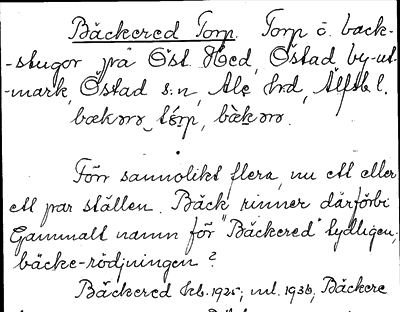 Bäckered Torp. Torp o. back-
-stugor på Öst. Hed, Östad by-ut-
-mark, Östad s:n, Ale hrd, Älfsb l.
Förr sannolikt flera, nu ett eller
ett par ställen. Bäck rinner därförbi
Gammalt namn för "Bäckered" tydligen,
bäcke-rödjningen?
Bäckered hb. 1925; ml. 1938; Bäckere